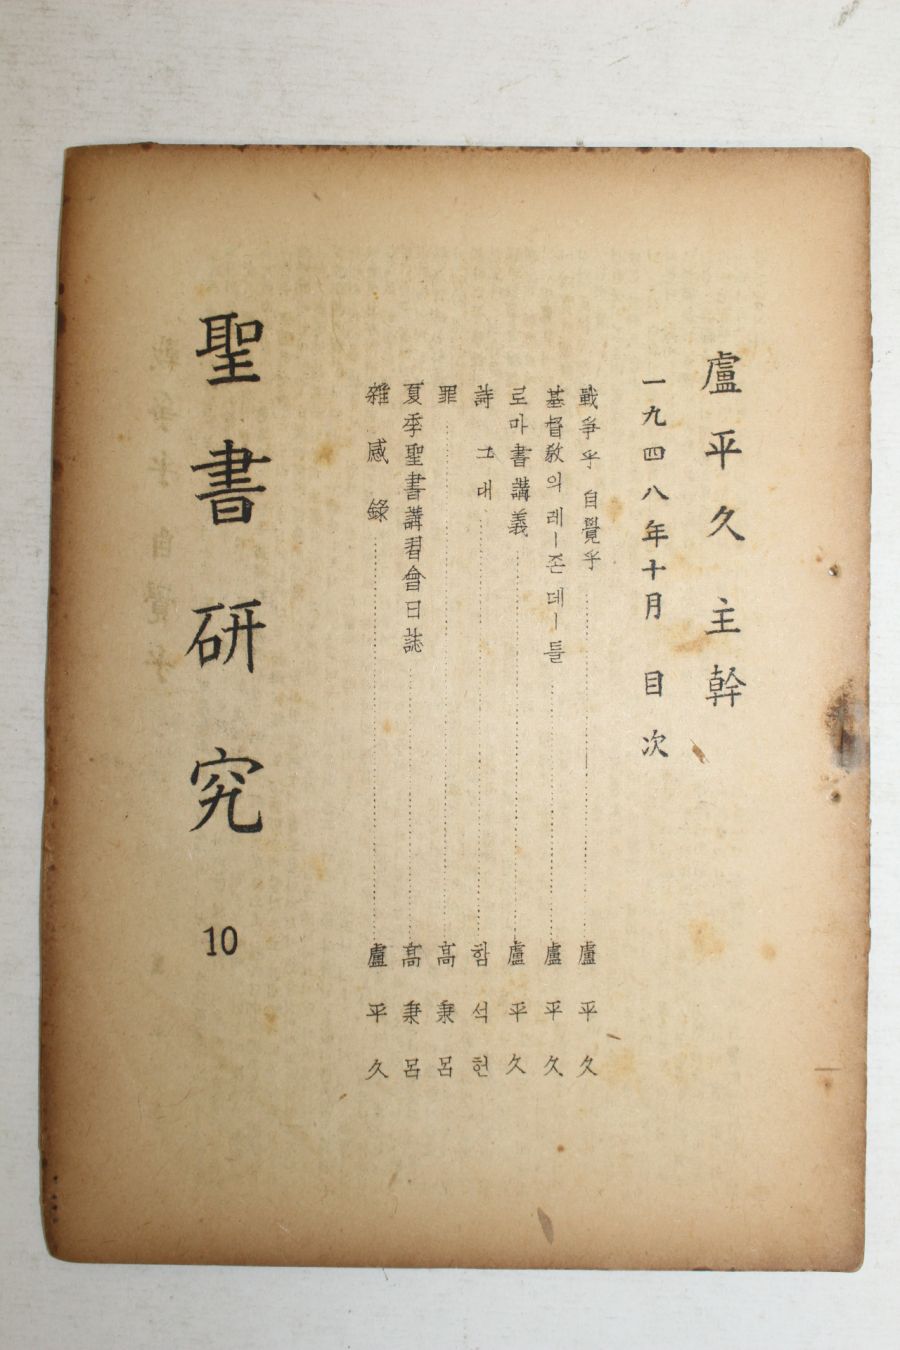 盧平久 主幹
一九四八年十月 目次
戰爭乎 自覺乎……盧平久
基督敎의 레ー존데ー틀……盧平久
로마書講義……盧平久
詩 그대……함석헌
罪……高秉呂
夏季聖書講習會日誌……高秉呂
雜感錄……盧平久
聖書研究 10